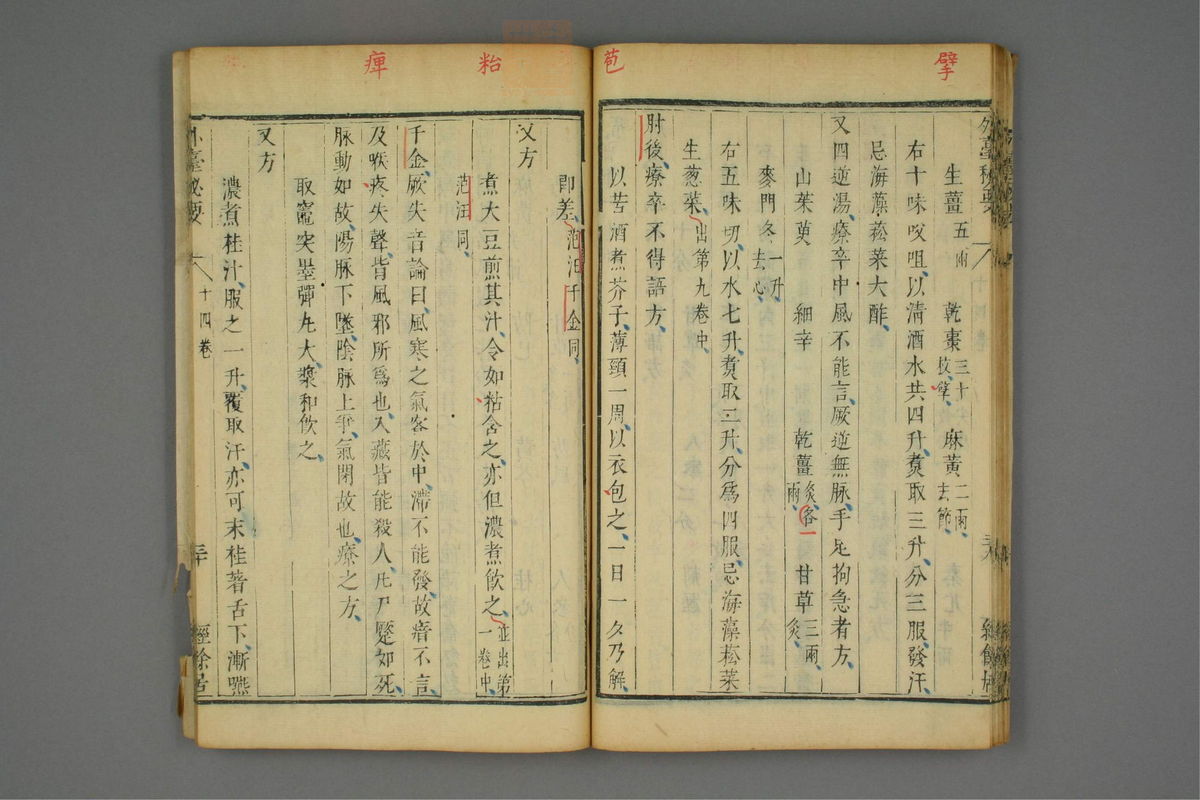 擘
苞
外臺秘要
生薑五兩 乾棗三十枚擘 麻黃二兩去節
右十味㕮咀以清酒水共四升煑取三升分三服發汗
忌海藻菘菜大酢
又四逆湯療卒中風不能言厥逆無脉手足拘急者方
山茱萸 細辛 乾薑炙各一兩 甘草三兩炙
麥門冬一升去心
右五味切以水七升煑取二升分爲四服忌海藻菘菜
生葱菜出第九卷中
肘後療卒不得語方
以苦酒煮芥子薄頸一周以衣包之一日一夕乃解
粘
痺
即差范汪千金同
又方
煮大豆煎其汁令如粘含之亦但濃煮飲之並出第一卷中
范汪同
千金厥失音論曰風寒之氣客於中滯不能發故瘖不言
及喉疼失聲皆風邪所爲也入藏皆能殺人凡尸蹷如死
脉動如故陽脉下墜陰脉上爭氣閉故也療之方
取竈突墨彈丸大漿和飲之
又方
濃煮桂汁服之一升覆取汗亦可末桂著舌下漸嚥
外臺秘要 十四卷 二十 經餘居